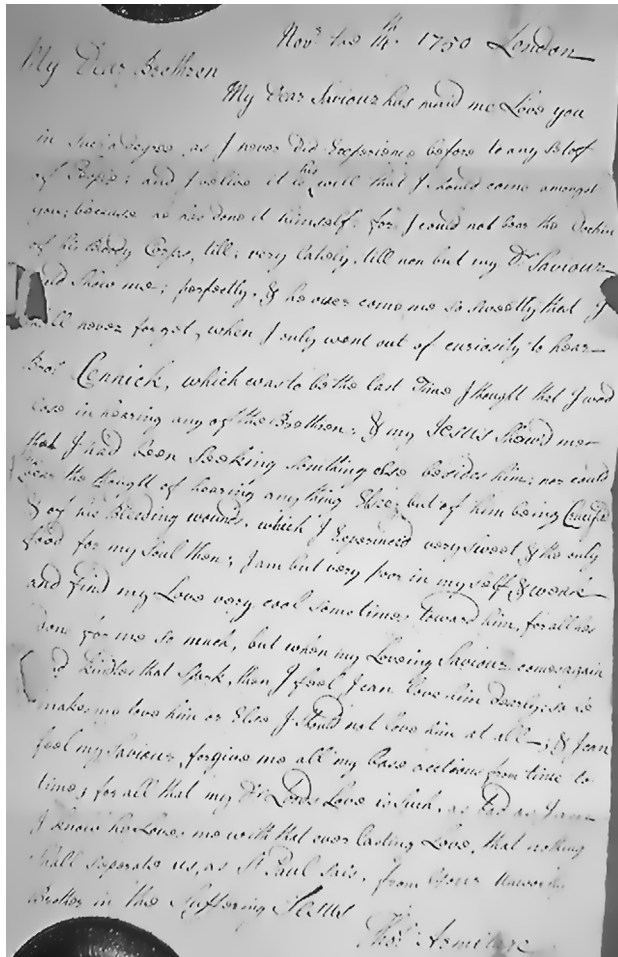 Novr. the 14th. 1750 London
My Dear Brethren
My Dear Saviour has maid me Love you
in such a degree, as I never did Experience before to any set of
of People; and I belive it is his will that I should come amongst
you; because he has done it himself: for I could not bear the Doctrin
of his Bloody Corps, till; very lately, till non but my Dr. Saviour
and Show me; perfectly, & he over came me so sweetly that I
will never forget, when I only went out of curiosity to hear
Bror. Cennick, which was to be the last Time I thought that I wod
care in hearing any of the Brethren: & my Jesus Show'd me
that I had been Seeking somthing else besides him; nor could
I bear the thought of hearing any thing Else; but of him being Crucifi'd
& of his Bleeding wounds, which I Experienced very sweet & the only
food for my Soul then; I am but very poor in my self & weak
and find my Love very cool sometimes toward him, for all he's
done for me so much, but when my Loveing Saviour comes again
and kindles that spark, then I feel I can love him dearly: so is
makes me love him or Else I should not love him at all; & I can
feel my Saviour, forgive me all my base actions from time to
time; for all that my Dr. Lords Love is such, as bad as I am
I know he Loves me with that ever lasting Love, that nothing
shall seperate us, as St Paul sais, from Your Unworthy
Brother in the Suffering Jesus
Thos. Armitage